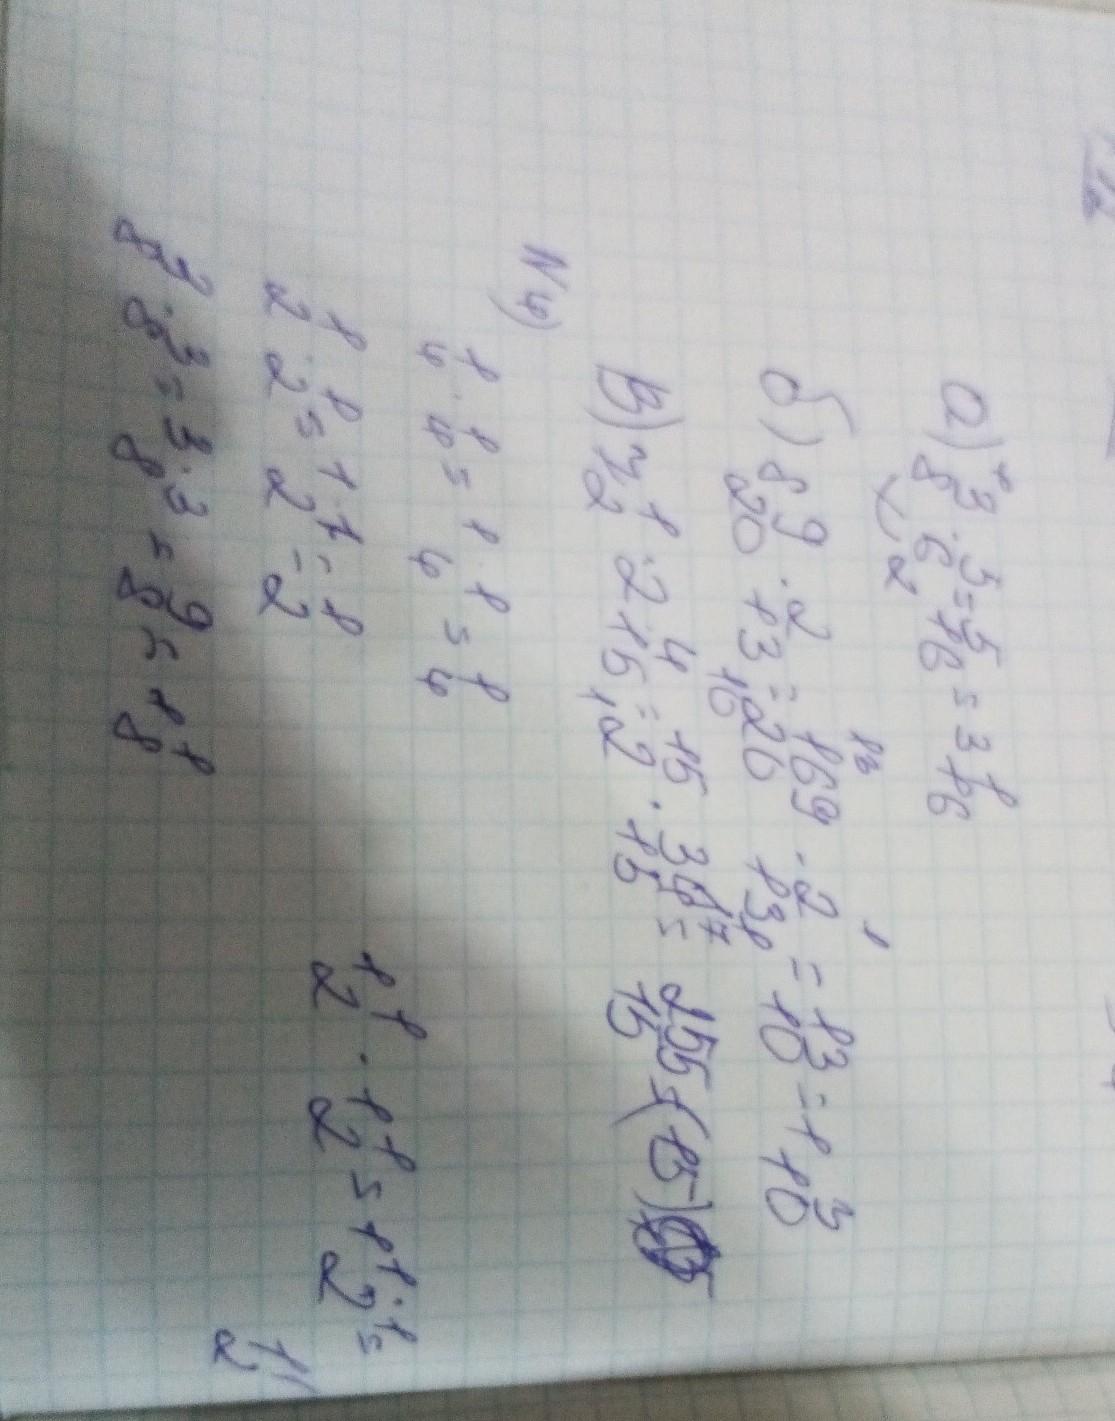 а) 3/8 · 5/6 = 5/16 = 3 1/16
б) 8 9/20 · 2/13 = 169/20 · 2/13 = 13/10 = 1 3/10
В) 7 1/2 · 2 4/15 = 15/2 · 34/15 = 255/15 = (15)
N4)
1/4 · 1/4 = 1·1/4 = 1/4
1/2 · 1/2 = 1·1/2 = 1/2
1 1/2 · 1 1/2 = 1 1·1/2 =
1 1/2
3/8 · 3/8 = 3·3/8 = 9/8 = 1 1/8